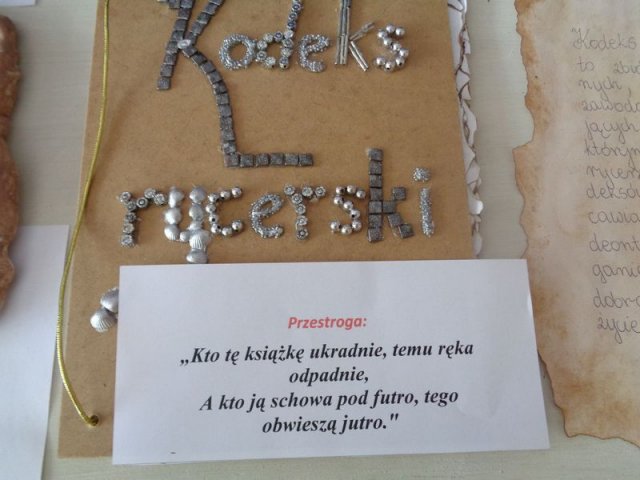 Kodeks
rycerski
Przestroga:
„Kto tę książkę ukradnie, temu ręka
odpadnie,
A kto ją schowa pod futro, tego
obwieszą jutro."
Kodeks
to zbi
nych
zawod
jących
którym
rycers
deksó
zawo
deont
gani
dobr
życie